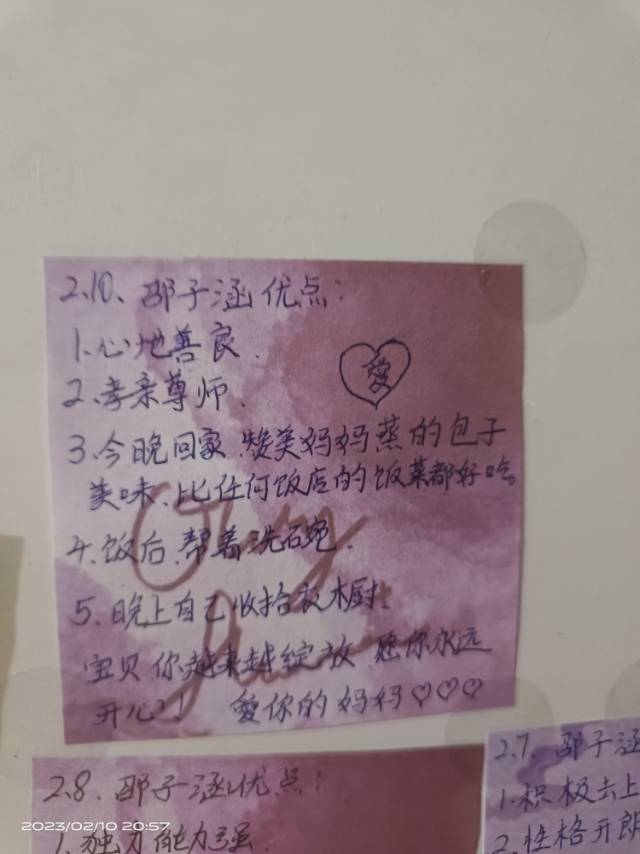 2.10、邵子涵优点：
1.心地善良．
愛
2、孝亲尊师．
3、今晚回家，赞美妈妈蒸的包子
美味，比任何饭店的饭菜都好吃。
4、饭后，帮着洗碗．
5、晚上自己收拾衣橱．
宝贝你越来越绽放 愿你永远
开心！ 愛你的妈妈♡♡♡
2.8、邵子涵优点：
1、独力能力强
2.7、邵子涵
1.积极去上
2、性格开朗
2023/02/10 20:57